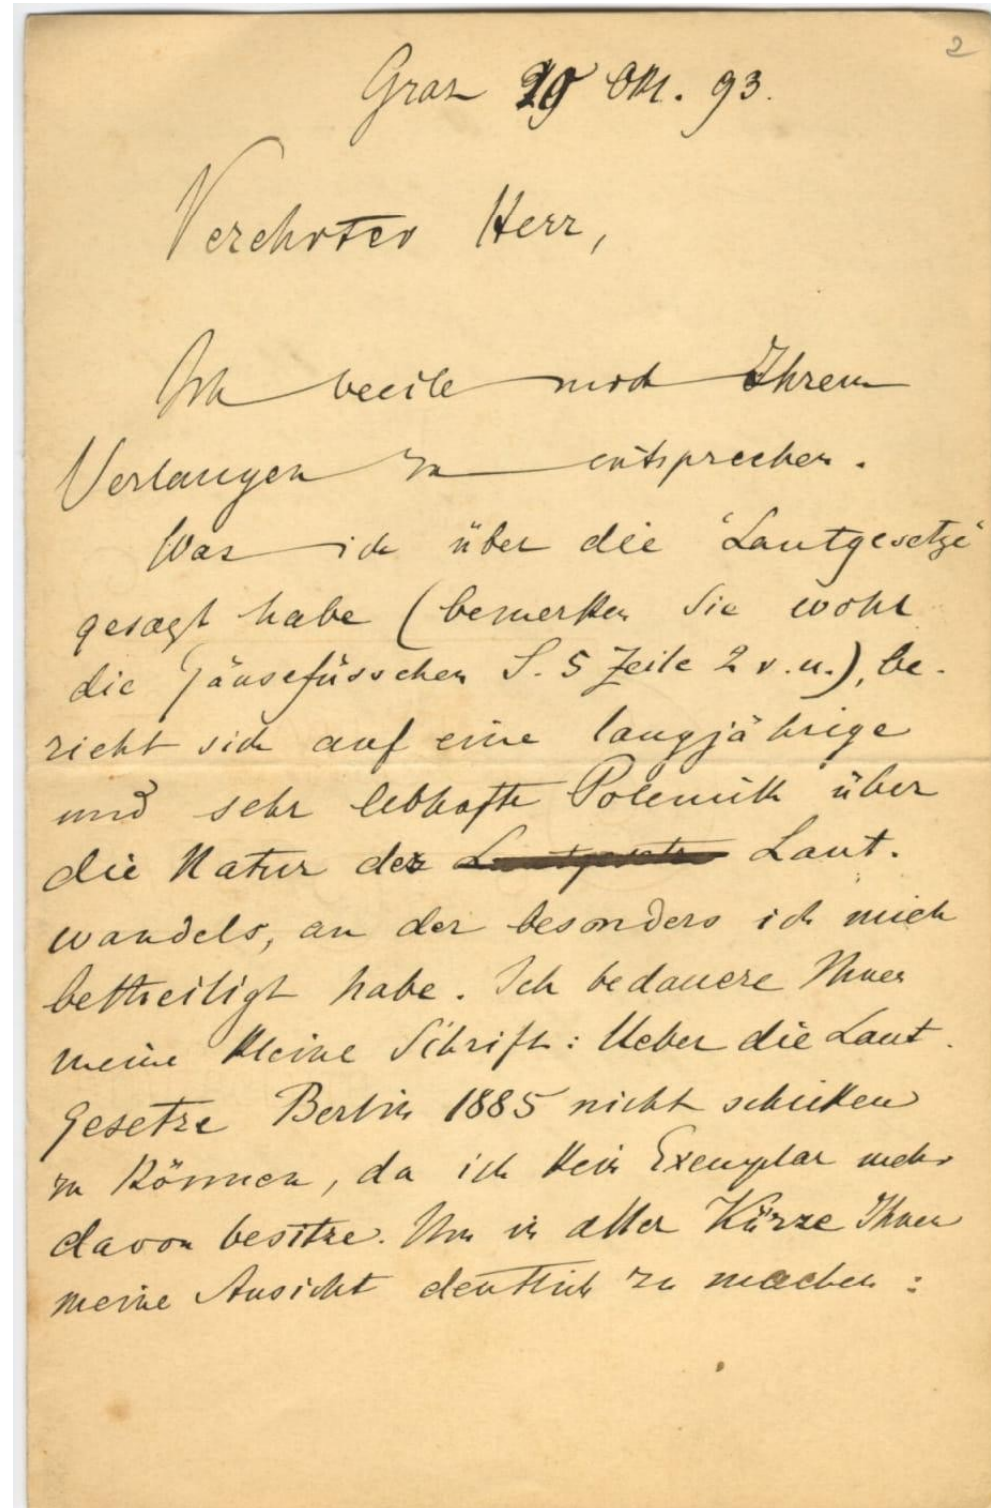 2
Graz 29 Okt. 93.
Verehrter Herr,
Ich beeile mich Ihrem
Verlangen zu entsprechen.
Was ich über die 'Lautgesetze'
gesagt habe (bemerken Sie wohl
die Gänsefüsschen S. 5 Zeile 2 v. u.), be-
zieht sich auf eine langjährige
und sehr lebhafte Polemik über
die Natur des Laut-
wandels, an der besonders ich mich
betheiligt habe. Ich bedauere Ihnen
meine kleine Schrift: Ueber die Laut-
gesetze Berlin 1885 nicht schicken
zu können, da ich kein Exemplar mehr
davon besitze. Um in aller Kürze Ihnen
meine Ansicht deutlich zu machen: